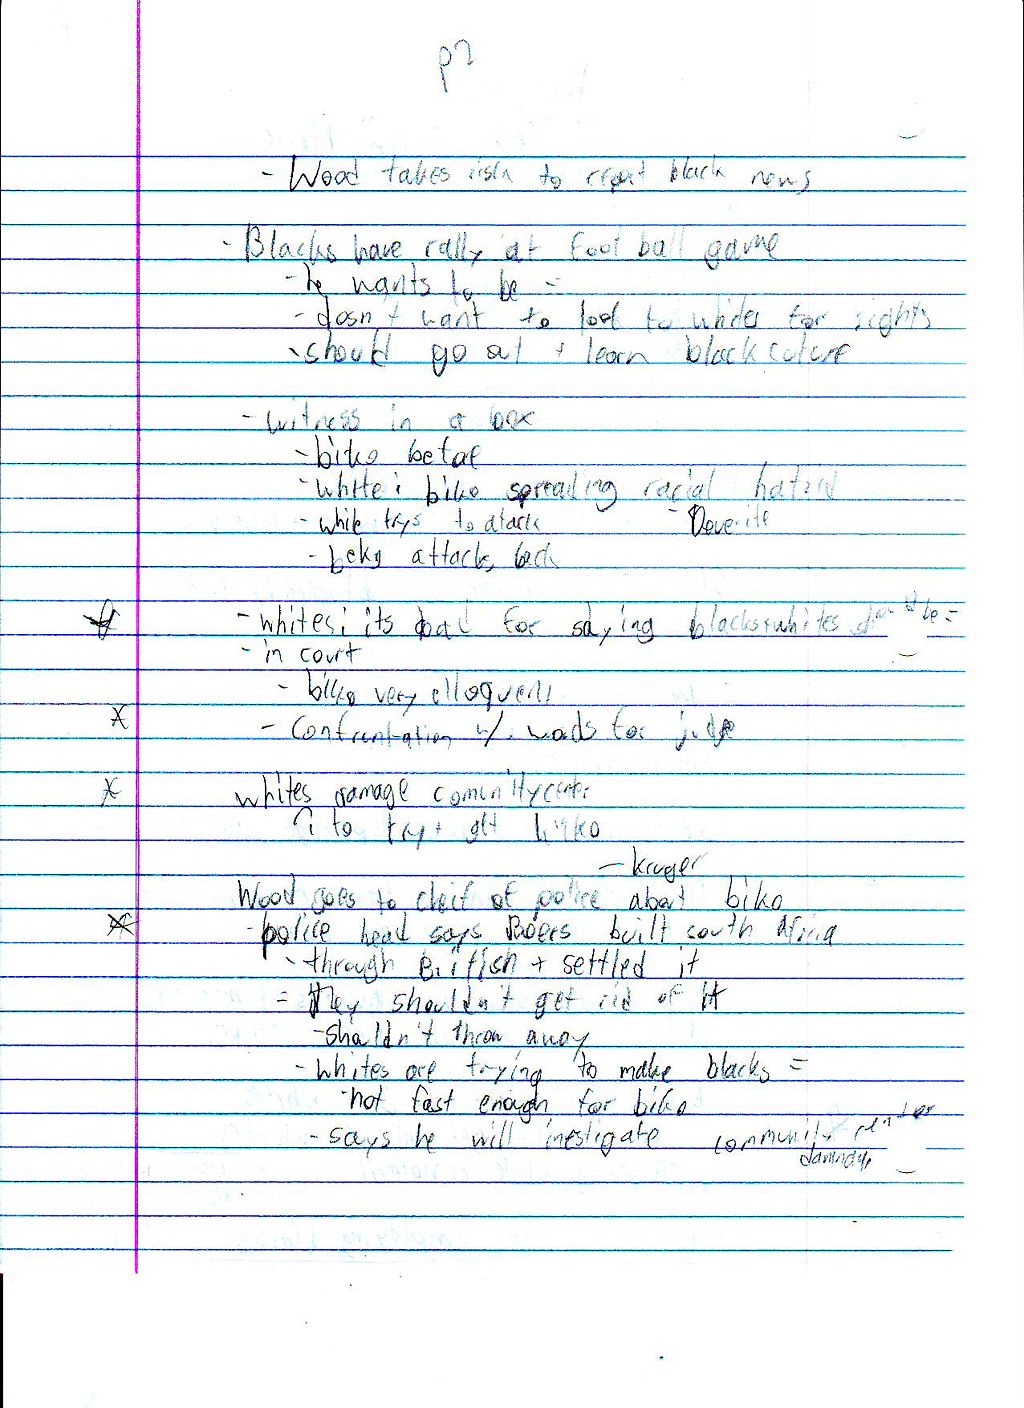 p2
- Wood takes risk to black news
- Blacks have rally at foot ball game
- he wants to be =
- dosn't want to look to whites for rights
- should go out + learn black culure
- witness in a box
- biko
- white: biko spreading racial hatrid
- white trys to atack
- attacks back
- whites: its bad for saying blacks + whites be =
- in court
- biko very elloquent
- Confrontation w/. for judge
whites damage comunity center
to try + get biko
- kruger
Wood goes to cheif of police about biko
- police head says Boers built south Africa
- through British + settled it
= they shouldn't get rid of it
- shouldn't throw away
- whites are trying to make blacks =
- not fast enough for biko
- says he will inestigate community center